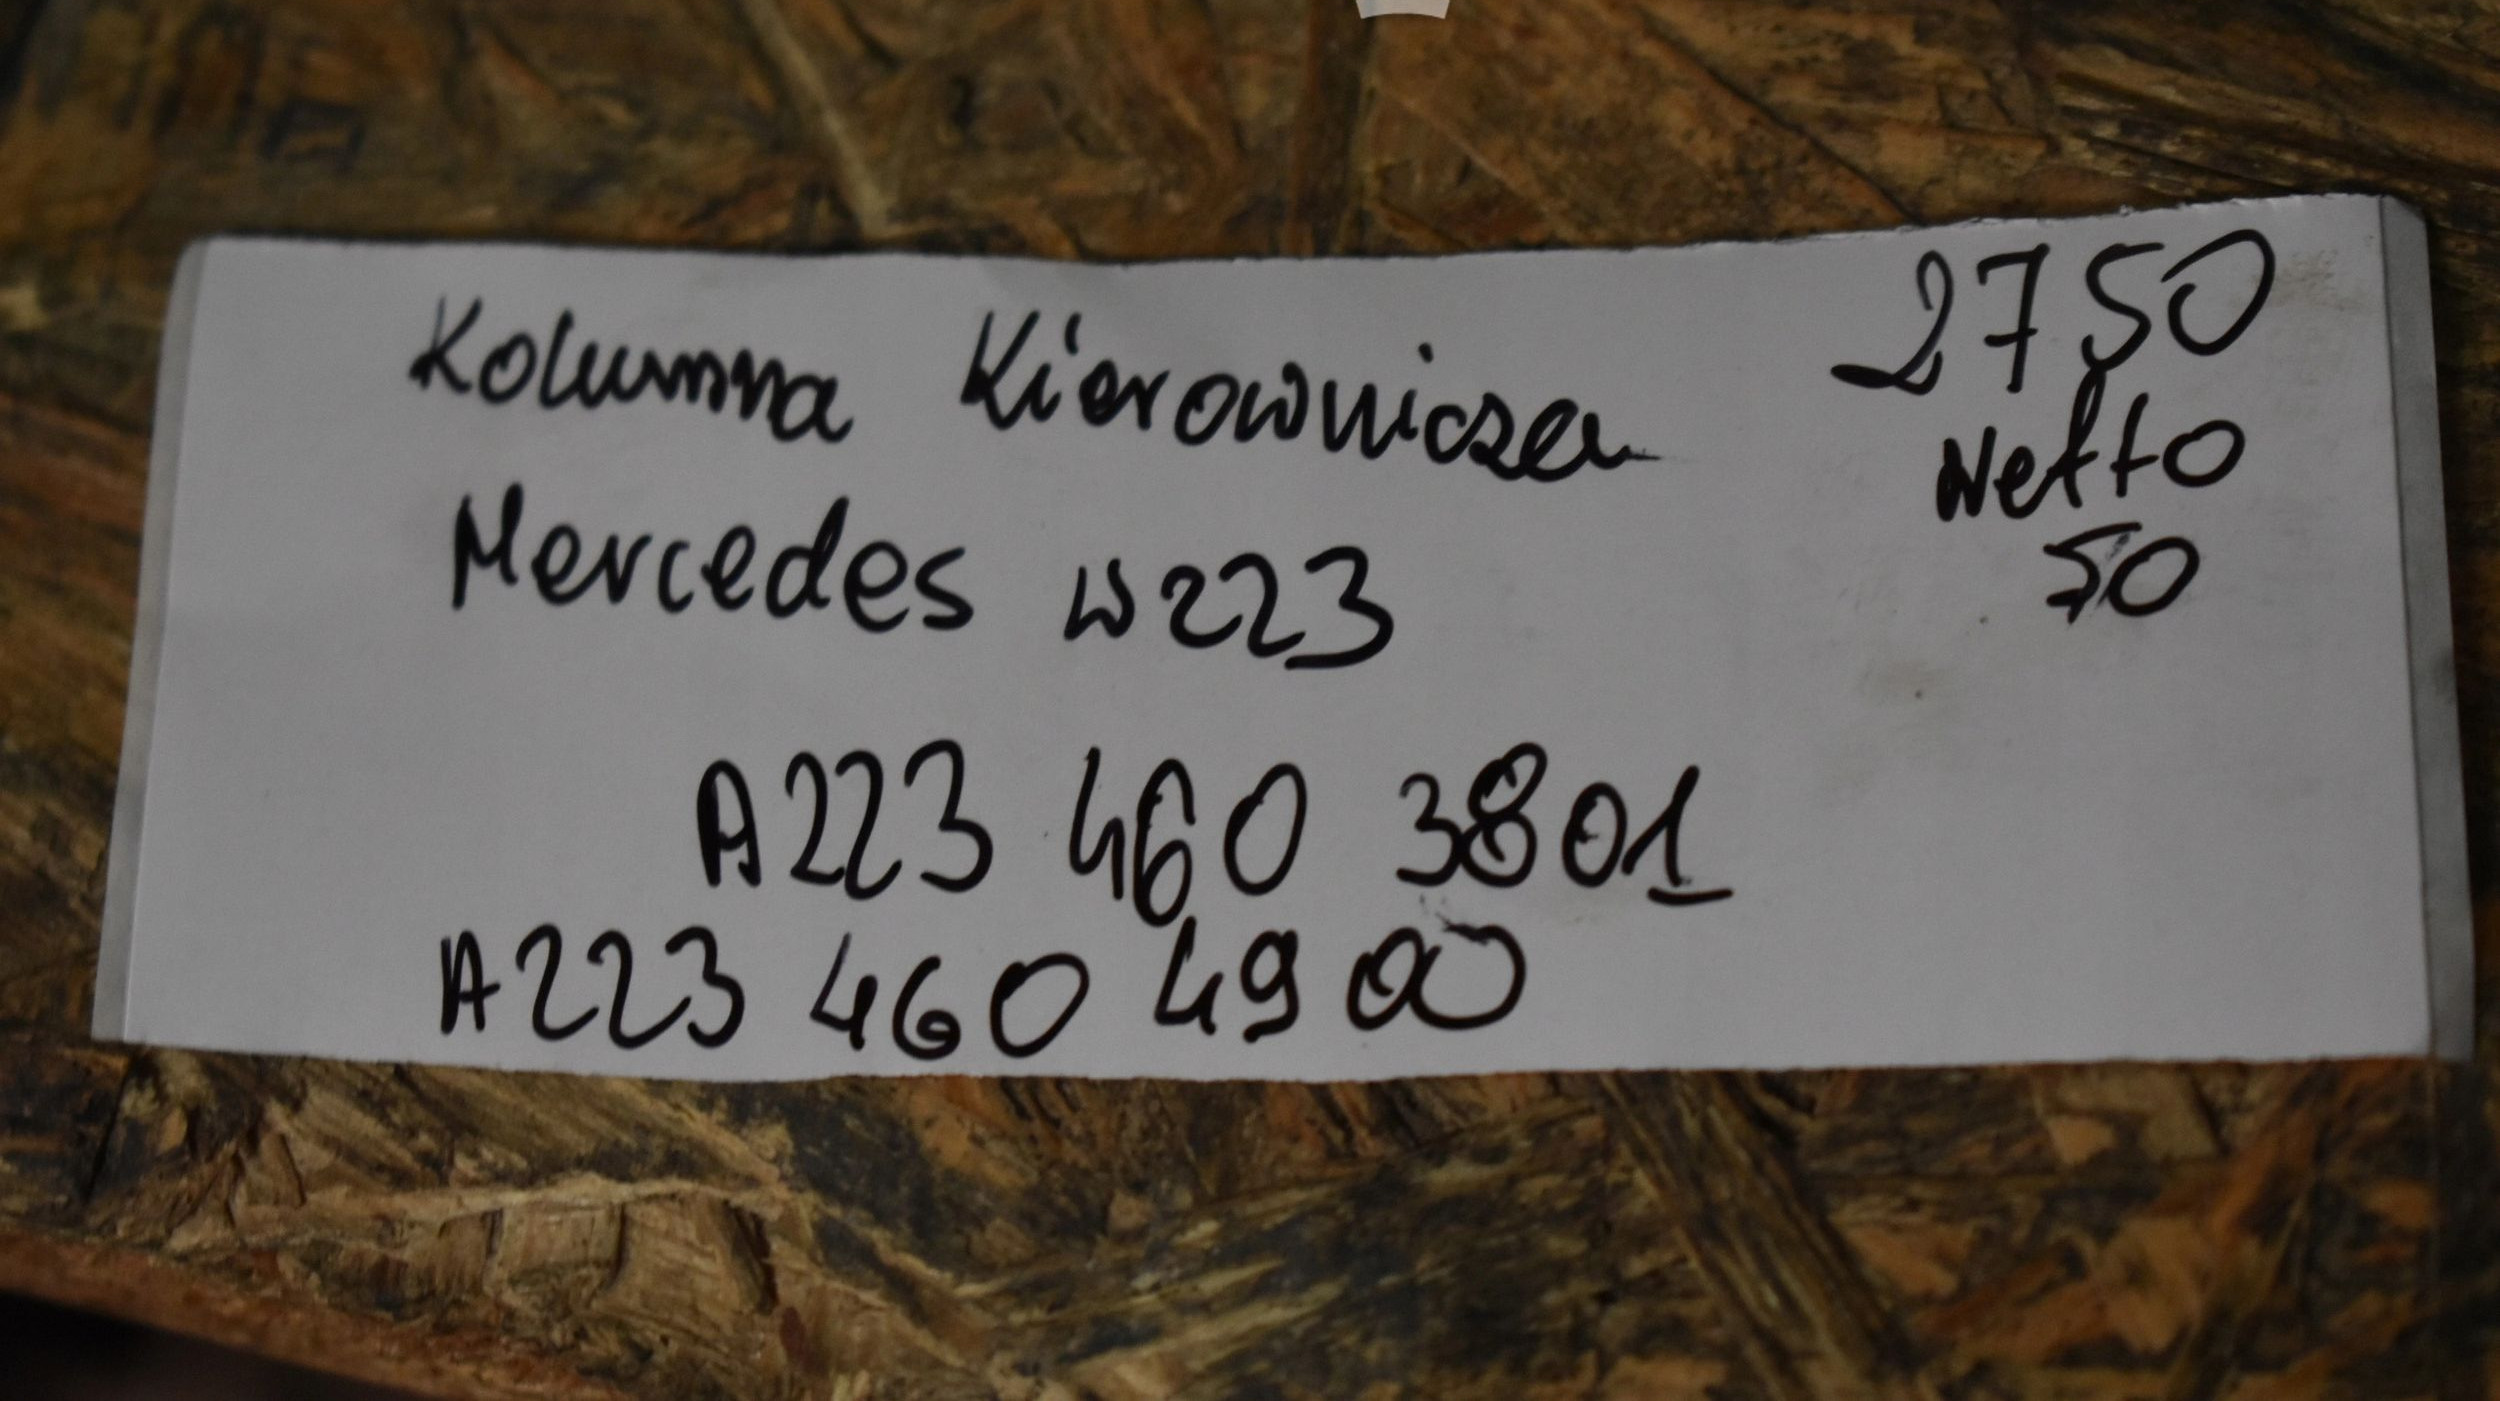 Kolumna Kierownicza
Mercedes W223
2750
Netto
50
A223 460 3801
A223 460 4900